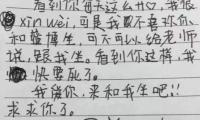 看到你每天这么开心，我很
xin wei，可是我最不喜欢你
和蓝博生，可不可以给老师
说，跟我坐。看到你这样，我
快要死了。
我信你，来和我坐吧！！
求求你了。